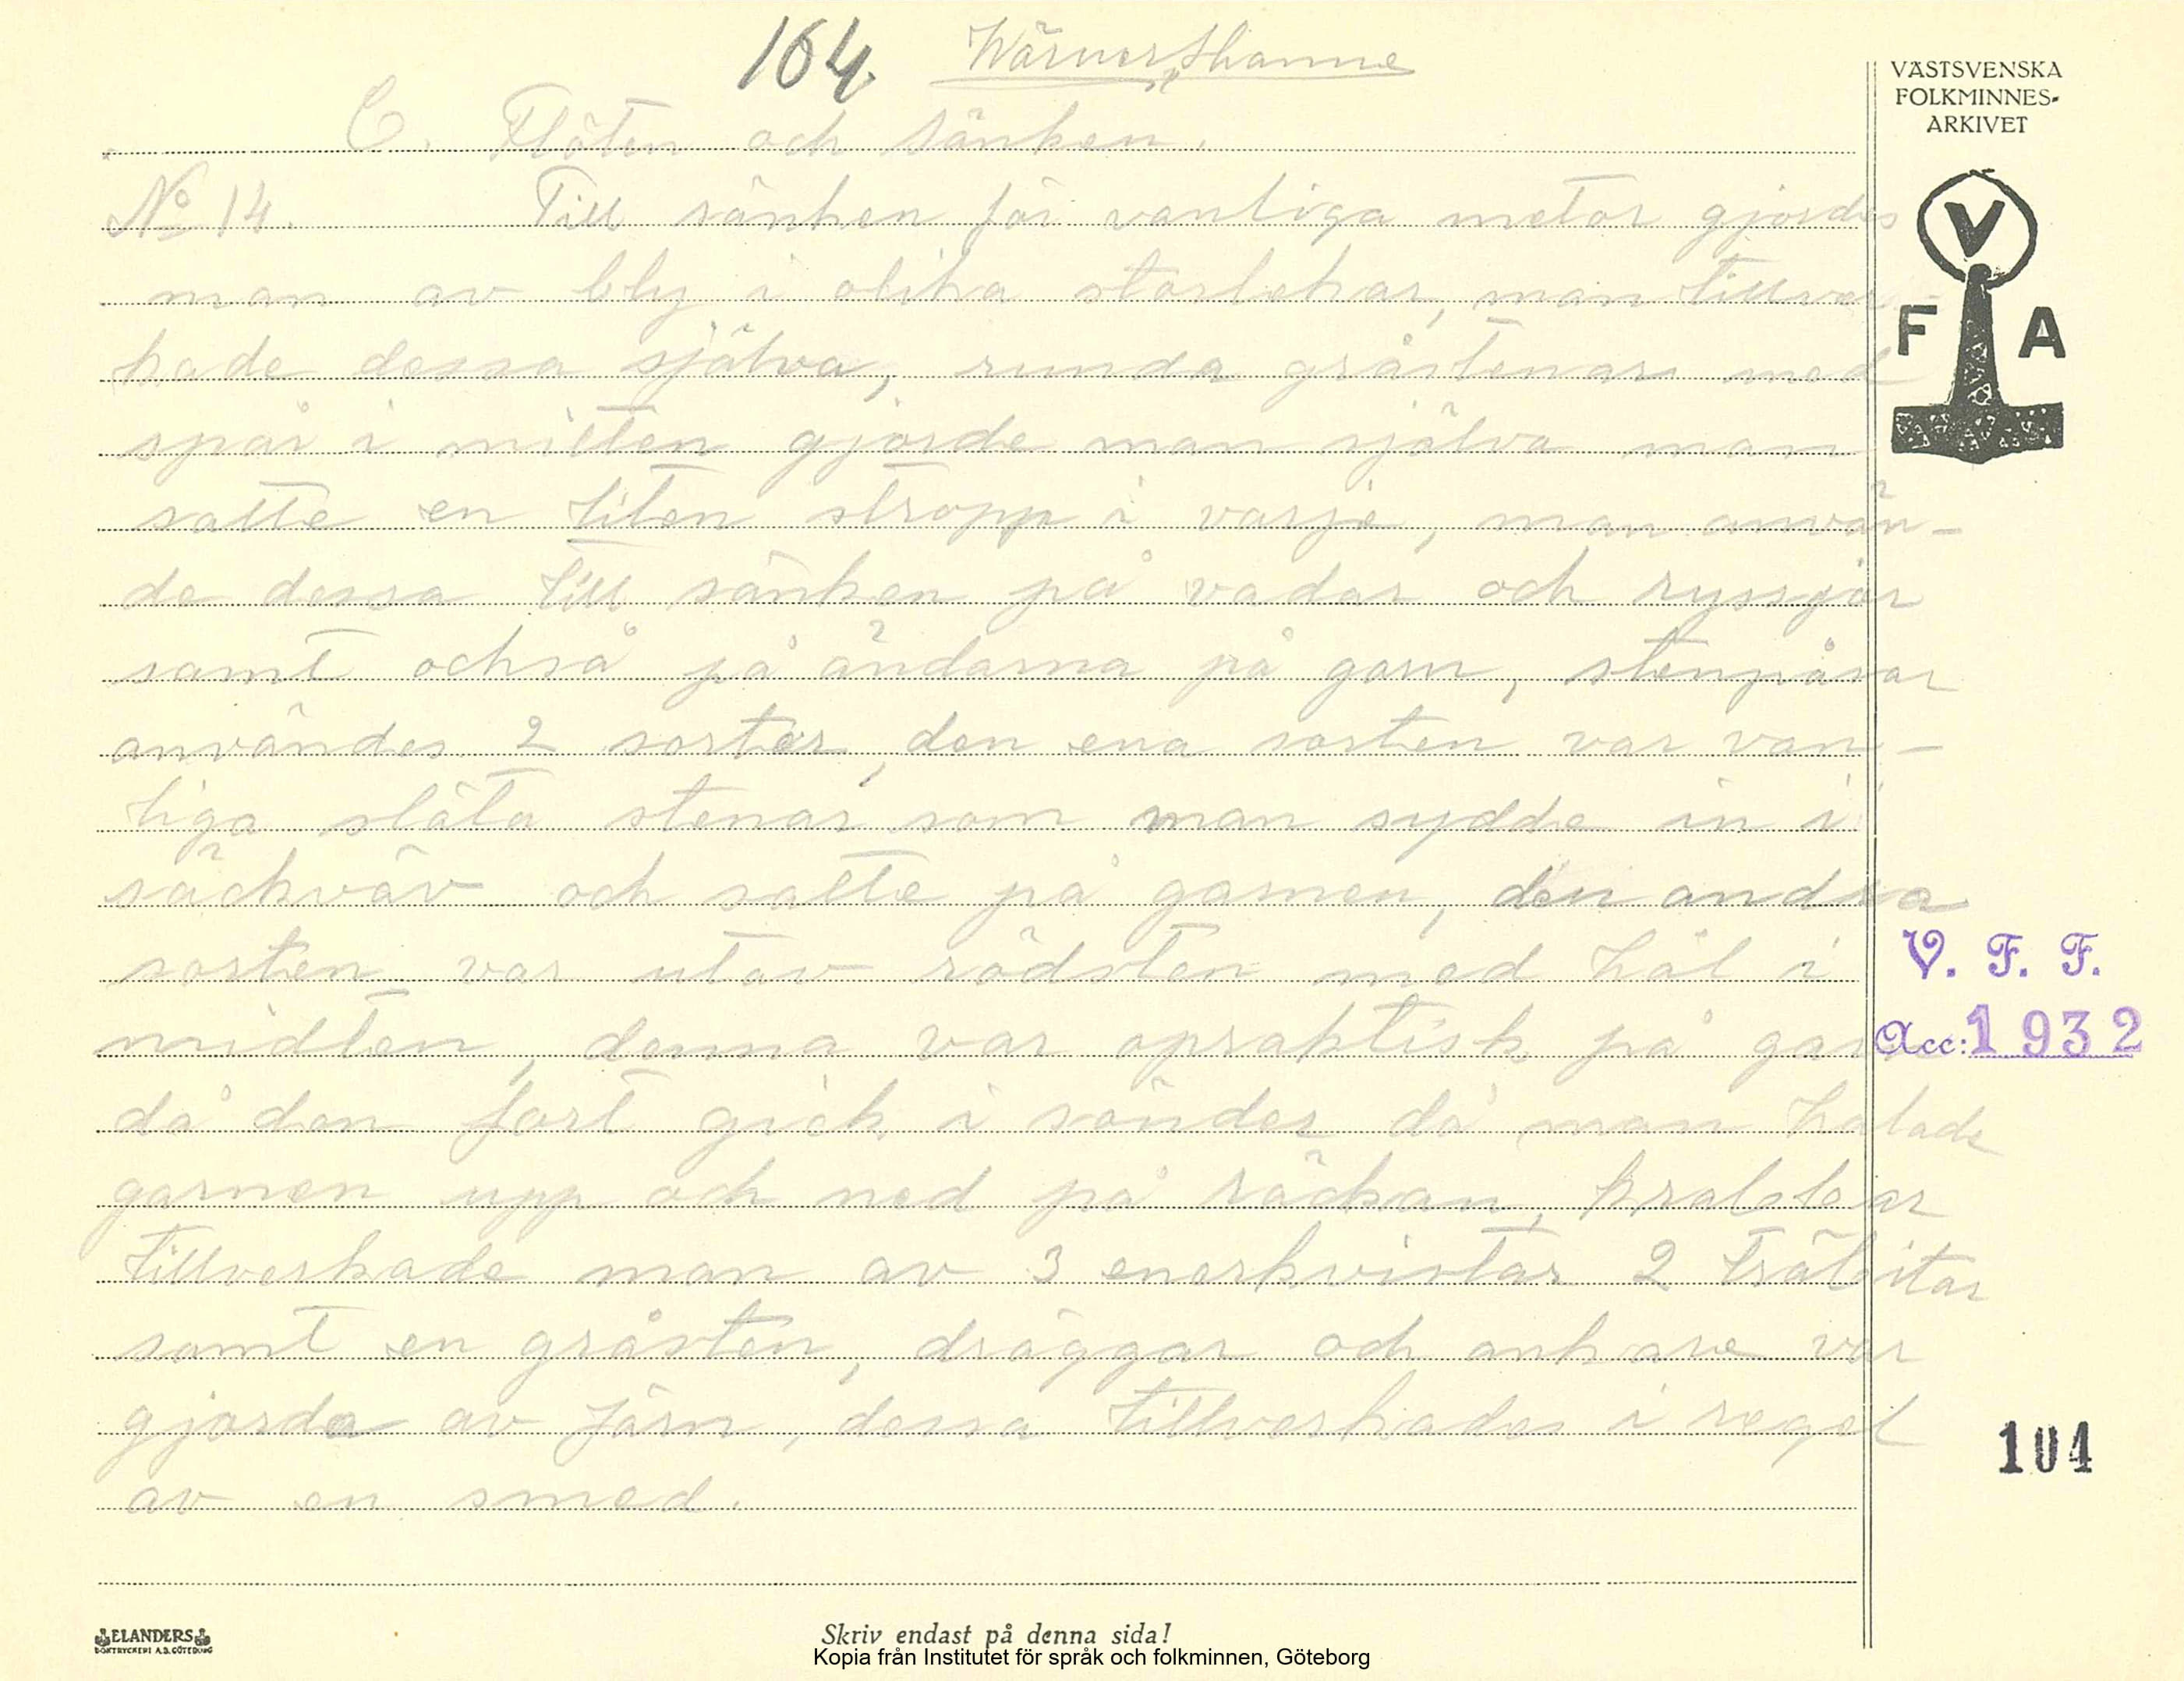 164. Wärner, Hanne
VÄSTSVENSKA
FOLKMINNES-
ARKIVET
C. Flöten och sänken.
No 14. Till sänken för vanliga metor gjordes
man av bly i olika storlekar, man tillver-
kade dessa själva, runda gråstenar med
spår i mitten gjorde man själva man
satte en liten stropp i varje, man använ-
de dessa till sänken på vadar och ryssjor
samt också på ändarna på garn, stenpåsar
användes 2 sorter, den ena sorten var van-
liga släta stenar som man sydde in i
säckväv och satte på garnen, den andra
sorten var utav rödsten med hål i
midten, denna var opraktisk på garn
då den fort gick i sönder då man halade
garnen upp och ned på räckan, krablar
tillverkade man av 3 enerkvistar 2 träbitar
samt en gråsten, dräggar och ankare var
gjorda av järn, dessa tillverkades i regel
av en smed.
V
F A
V. F. F.
Acc: 1932
104
ELANDERS
BOKTRYCKERI A.B. GÖTEBORG
Skriv endast på denna sida!
Kopia från Institutet för språk och folkminnen, Göteborg